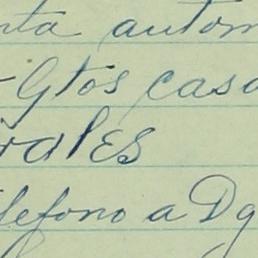 nta autom
Gtos casa
rales
lefono a Dg